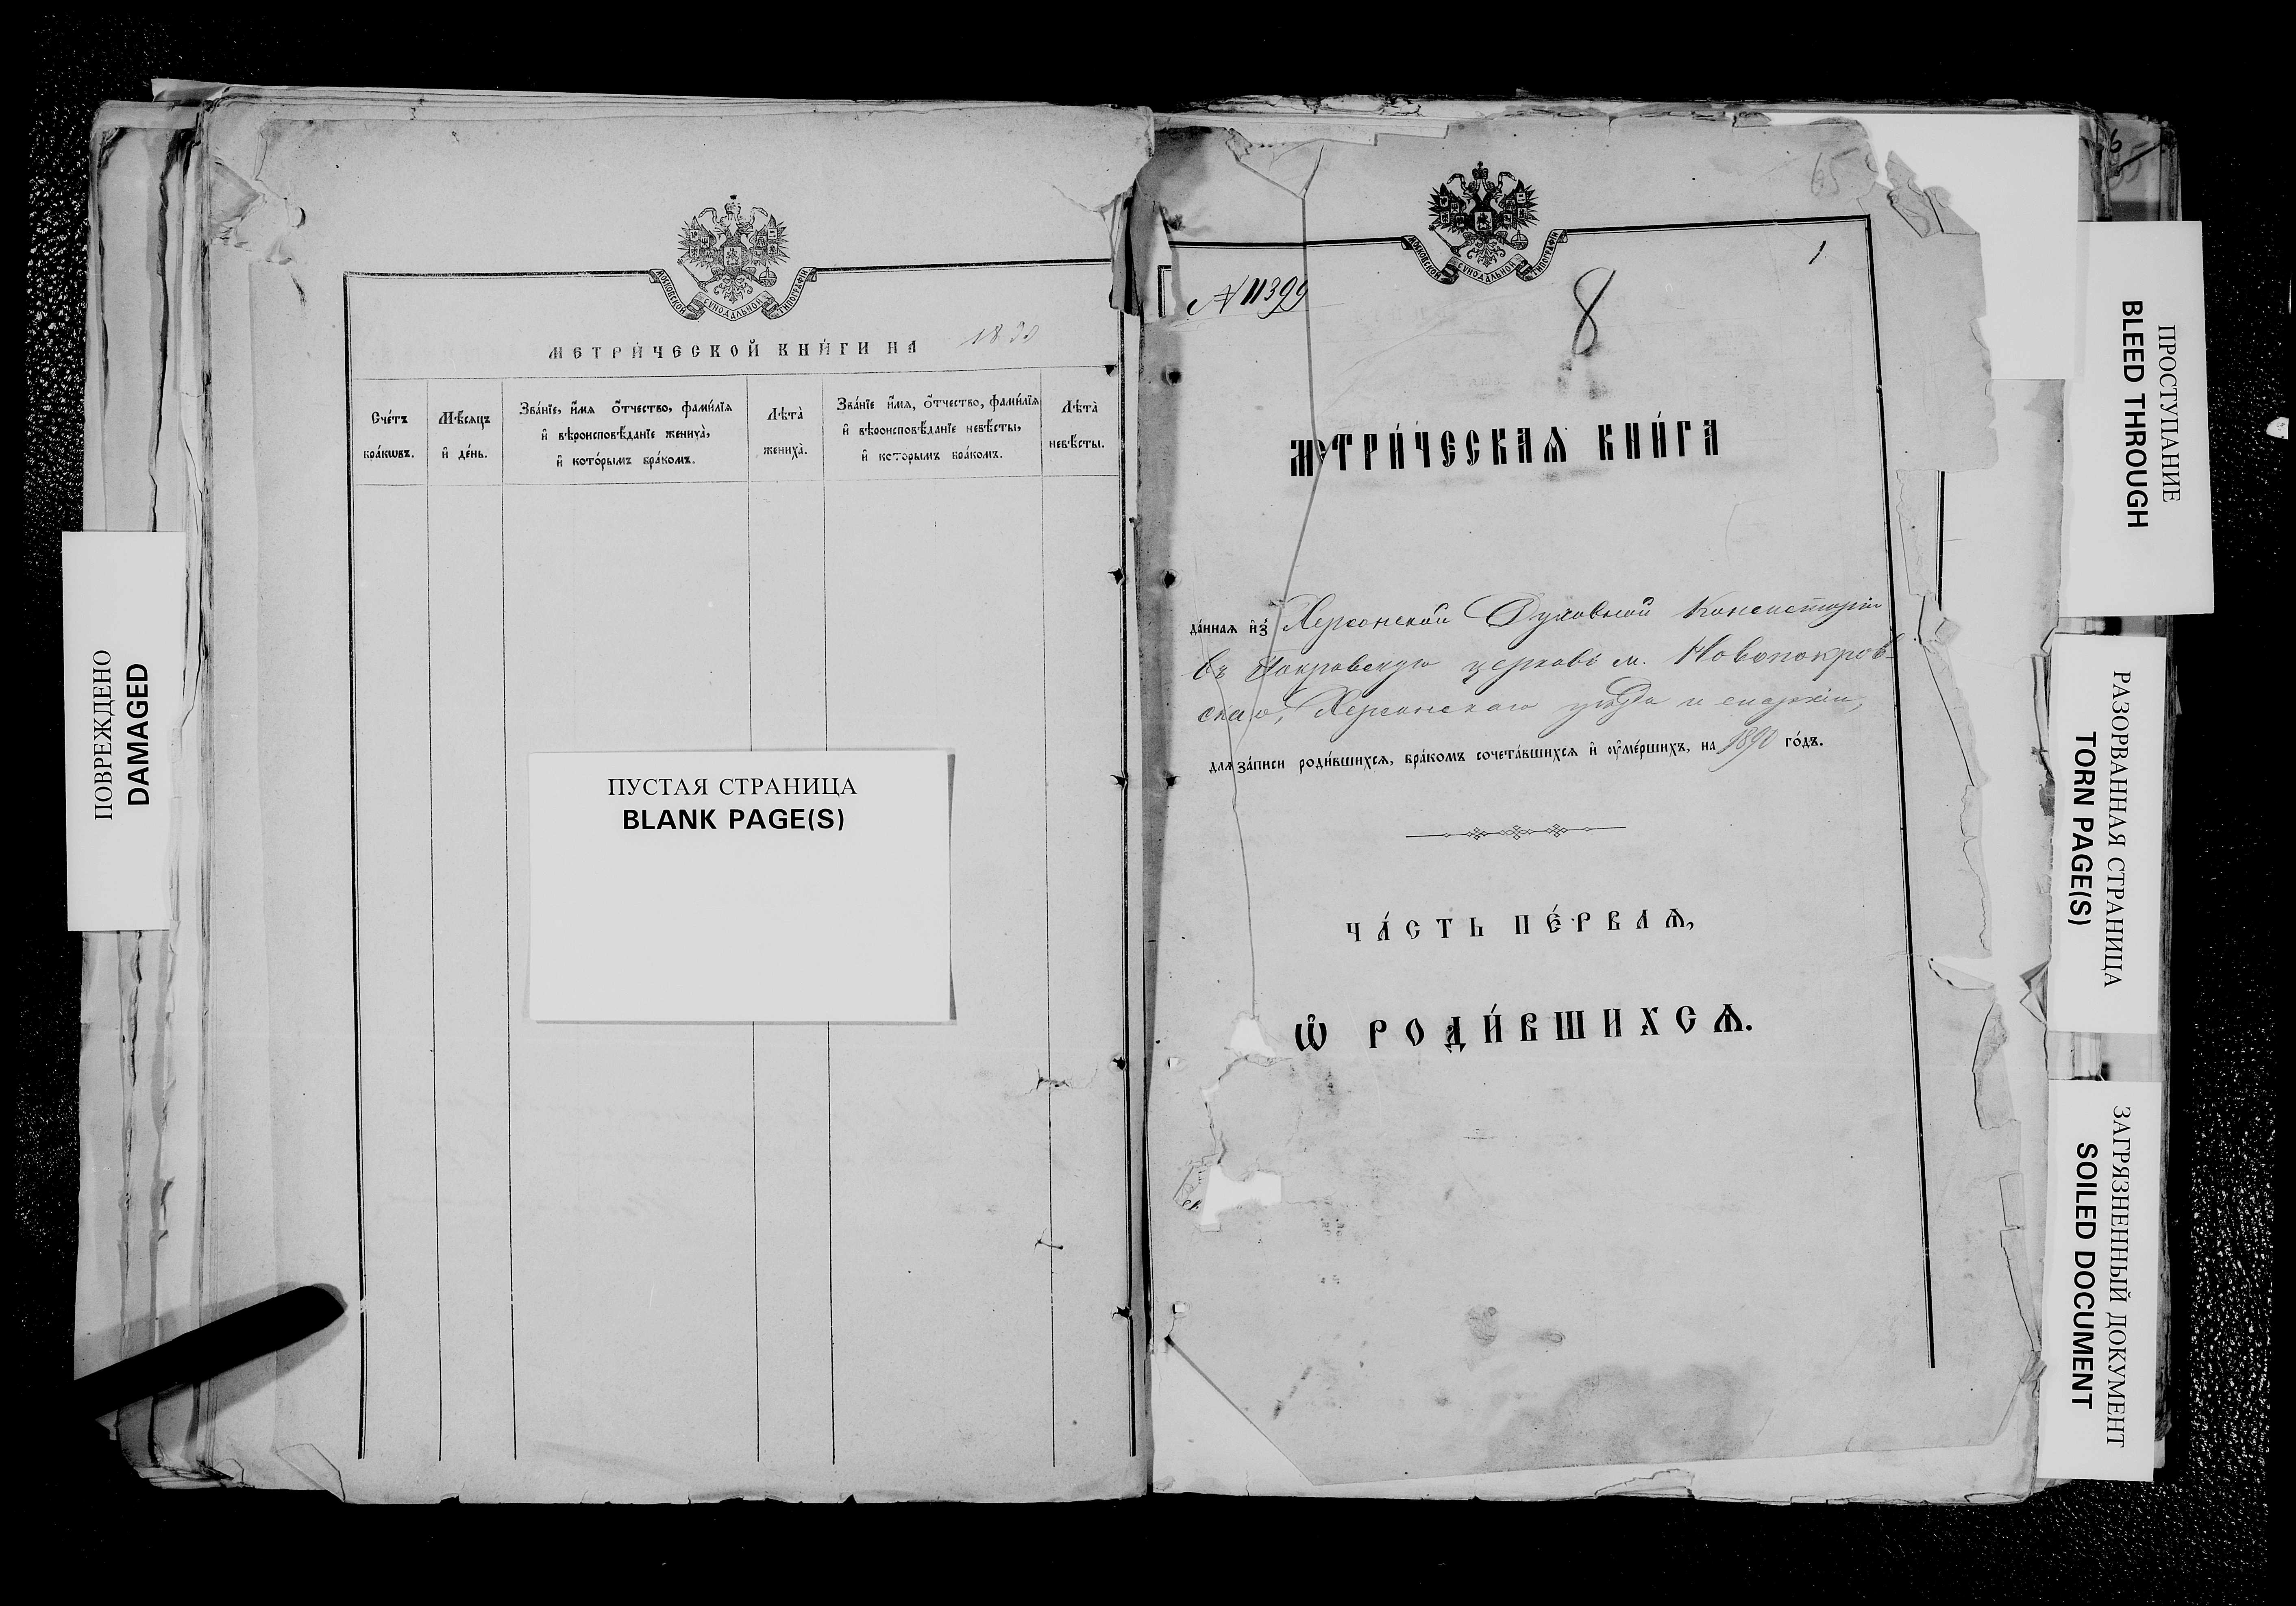 МОСКОВСКОЙ СѴНОДАЛЬНОЙ ТИПОГРАФІИ
МЕТРИ́ЧЕСКОЙ КНИ́ГИ НА
Сче́тъ бра́кѡвъ.
Мѣ́сяцъ и҆ де́нь.
Зва́нїе, и҆́мѧ ѻ҆́тчество, фамѝлїѧ
и҆ вѣроисповѣ́данїе жениха̀,
и҆ кото́рымъ бра́комъ.
Лѣта̀ жениха̀.
Зва́нїе и҆́мѧ, ѻ҆́тчество, фамѝлїѧ
и҆ вѣроисповѣ́данїе невѣ́сты,
и҆ которымъ бра́комъ.
Лѣта̀ невѣ́сты.
ПУСТАЯ СТРАНИЦА
BLANK PAGE(S)
ПОВРЕЖДЕНО
DAMAGED
65
МОСКОВСКОЙ СѴНОДАЛЬНОЙ ТИПОГРАФІИ
1
№ 11399
8
МЕТРИ́ЧЕСКАѦ КНИ́ГА
да́ннаѧ и҆з̾ Херсонской Духовной Консисторіи
въ Покровскую церковь м. Новопокров-
скаго, Херсонскаго уѣзда и епархіи,
для за́писи роди́вшихсѧ, бра́комъ сочета́вшихсѧ и҆ ᲂу҆ме́ршихъ, на 1890 го́дъ.
ЧА́СТЬ ПЕ́РВАѦ,
Ѽ РОДИ́ВШИХСѦ.
ПРОСТУПАНИЕ
BLEED THROUGH
РАЗОРВАННАЯ СТРАНИЦА
TORN PAGE(S)
ЗАГРЯЗНЕННЫЙ ДОКУМЕНТ
SOILED DOCUMENT